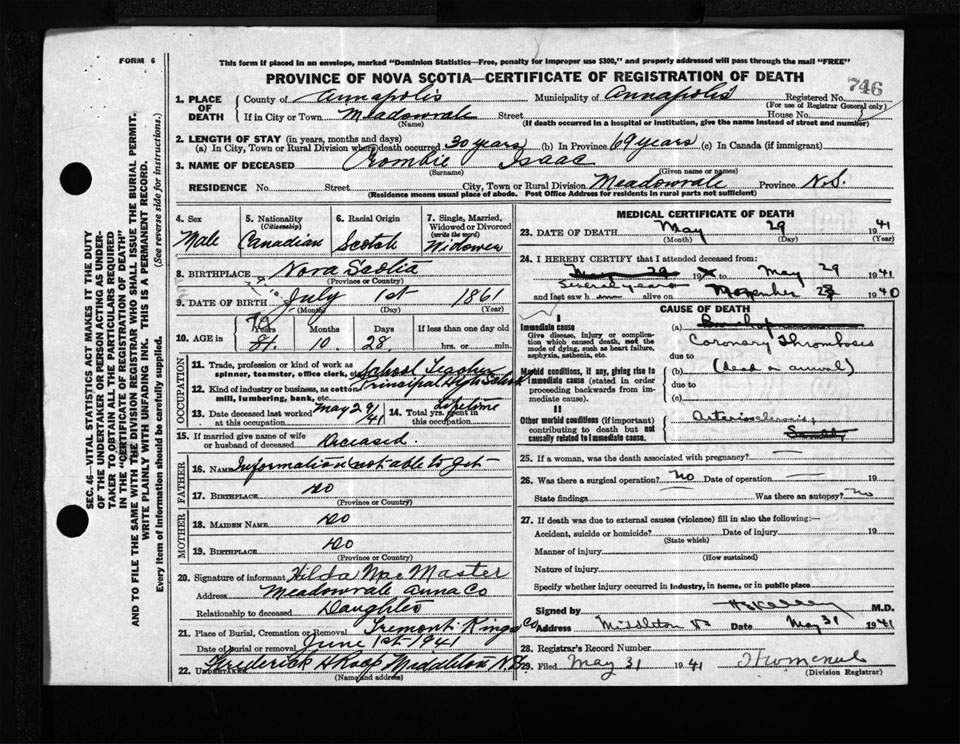 FORM 6
This form if placed in an envelope, marked "Dominion Statistics—Free, penalty for improper use $300," and properly addressed will pass through the mail "FREE"
PROVINCE OF NOVA SCOTIA—CERTIFICATE OF REGISTRATION OF DEATH
746
1. PLACE OF DEATH
County of Annapolis Municipality of Annapolis Registered No.
(For use of Registrar General only)
If in City or Town Meadowvale Street House No.
(Name) (If death occurred in a hospital or institution, give the name instead of street and number)
2. LENGTH OF STAY (in years, months and days)
(a) In City, Town or Rural Division where death occurred 30 years (b) In Province 69 years (c) In Canada (if immigrant)
3. NAME OF DECEASED Crombie Isaac
(Surname) (Given name or names)
RESIDENCE No. Street City, Town or Rural Division Meadowvale Province N.S.
(Residence means usual place of abode. Post Office Address for residents in rural parts not sufficient)
SEC. 46—VITAL STATISTICS ACT MAKES IT THE DUTY
OF THE UNDERTAKER OR PERSON ACTING AS UNDER-
TAKER TO OBTAIN ALL THE PARTICULARS REQUIRED
IN THE "CERTIFICATE OF REGISTRATION OF DEATH"
AND TO FILE THE SAME WITH THE DIVISION REGISTRAR WHO SHALL ISSUE THE BURIAL PERMIT.
WRITE PLAINLY WITH UNFADING INK. THIS IS A PERMANENT RECORD.
Every item of information should be carefully supplied. (See reverse side for instructions.)
4. Sex
Male
5. Nationality
(Citizenship)
Canadian
6. Racial Origin
Scotch
7. Single, Married,
Widowed or Divorced
(write the word)
Widower
8. BIRTHPLACE Nova Scotia
(Province or Country)
9. DATE OF BIRTH July 1st 1861
(Month) (Day) (Year)
10. AGE in Years Months Days If less than one day old
79 10 28 hrs. or min.
OCCUPATION
11. Trade, profession or kind of work as School Teacher
spinner, teamster, office clerk, etc.
12. Kind of industry or business, as cotton Principal High School
mill, lumbering, bank, etc.
13. Date deceased last worked May 29/41
at this occupation
14. Total yrs. spent in Lifetime
this occupation
15. If married give name of wife
or husband of deceased Deceased.
FATHER
16. NAME Information not able to get
17. BIRTHPLACE Do
MOTHER
18. MAIDEN NAME Do
19. BIRTHPLACE Do
(Province or Country)
20. Signature of informant Hilda MacMaster
Address Meadowvale Anna Co
Relationship to deceased Daughter
21. Place of Burial, Cremation or Removal Tremont Kings Co
Date of burial or removal June 1st-1941
22. UNDERTAKER Frederick A Roop Middleton N.S.
(Name and address)
MEDICAL CERTIFICATE OF DEATH
23. DATE OF DEATH May 29 1941
(Month) (Day) (Year)
24. I HEREBY CERTIFY that I attended deceased from:
Several years to May 29 1941
and last saw him alive on November 1940
CAUSE OF DEATH
I
Immediate cause
Give disease, injury or complica-
tion which caused death, not the
mode of dying, such as heart failure,
asphyxia, asthenia, etc.
(a) Coronary Thrombosis
due to
Morbid conditions, if any, giving rise to
immediate cause (stated in order
proceeding backwards from im-
mediate cause).
(b) (dead on arrival)
due to
(c)
II
Other morbid conditions (if important)
contributing to death but not
causally related to immediate cause.
Arteriosclerosis
25. If a woman, was the death associated with pregnancy? —
26. Was there a surgical operation? no Date of operation —
State findings Was there an autopsy? no
27. If death was due to external causes (violence) fill in also the following:—
Accident, suicide or homicide? Date of injury 19
(State which)
Manner of injury
(How sustained)
Nature of injury
Specify whether injury occurred in industry, in home, or in public place
Signed by M.D.
Address Middleton NS Date May 31 1941
28. Registrar's Record Number
29. Filed May 31 1941
(Division Registrar)